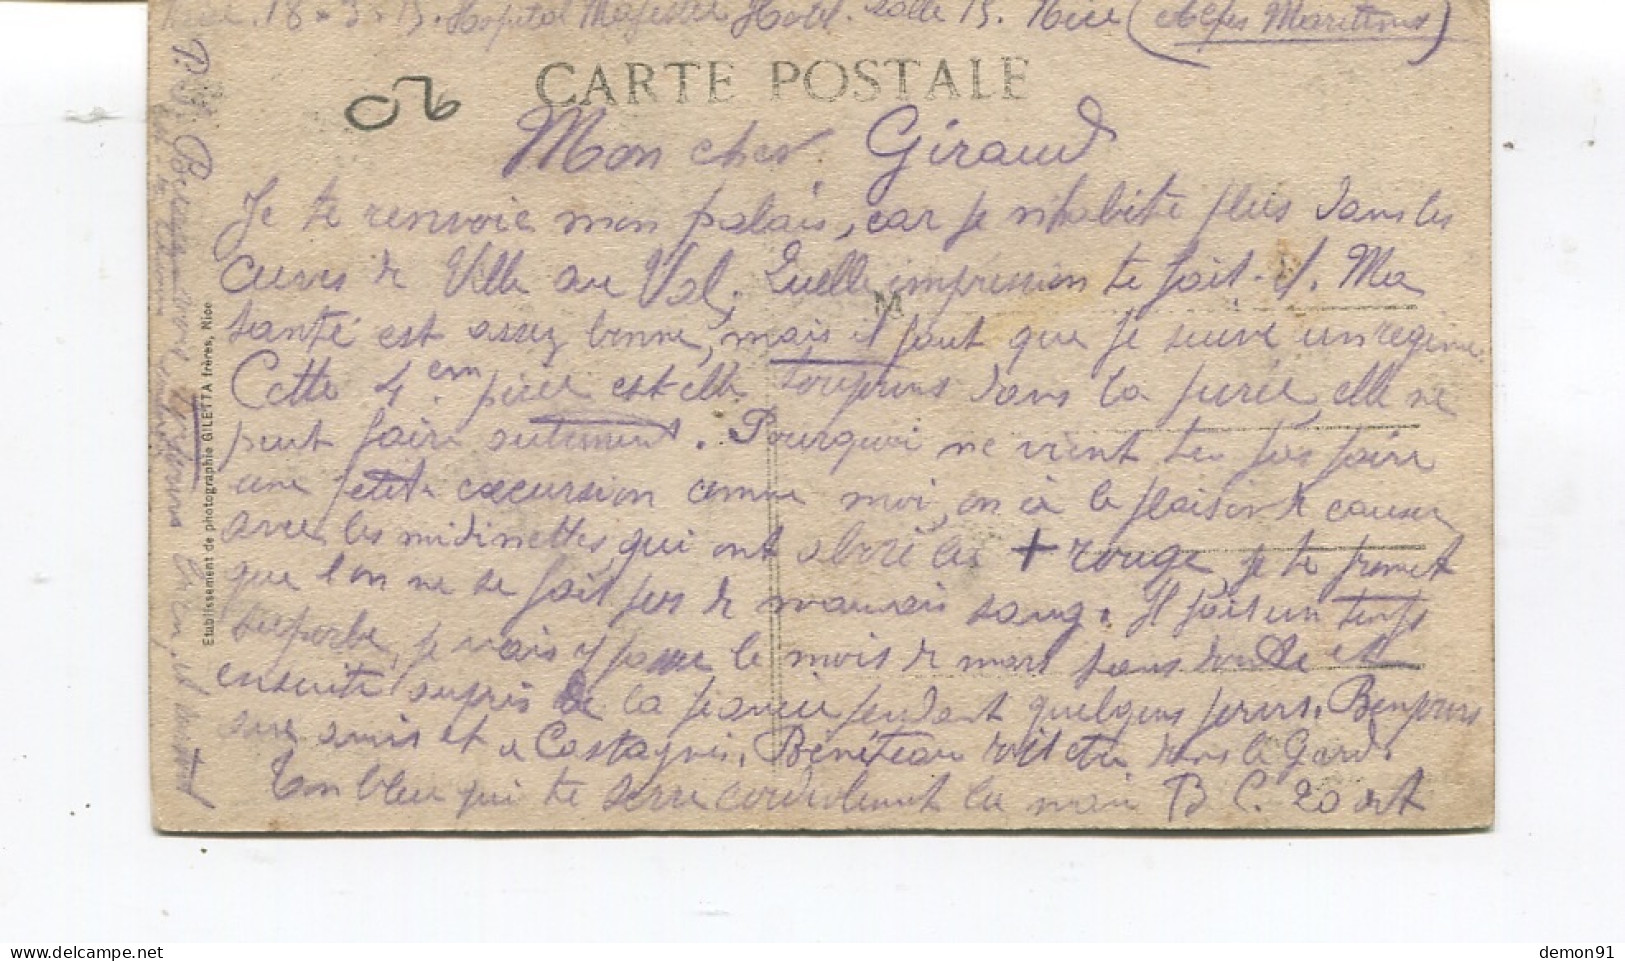 Nice. 18-3-15. Hopital Majestic Hotel. Salle 15. Nice (Alpes Maritimes)
CARTE POSTALE
Mon cher Giraud
Je te renvoie mon palais, car je n'habite plus dans les
caves de Ville au Val. Quelle impression te fait-il. Ma
santé est assez bonne, mais il faut que je suive un regime.
Cette 4em pièce est elle toujours dans la purée, elle ne
peut faire autrement. Pourquoi ne vient tu pas faire
une petite excursion comme moi, on à le plaisir de causer
avec les midinettes, qui ont la + rouge, je te promet
que l'on ne se fait pas de mauvais sang. Il fait un temps
superbe, je vais y passer le mois de mars sans doute et
ensuite auprès de la fiancée pendant quelques jours. Bonjours
aux amis et a Castagné. Bénéteau doit etre dans le Gard.
Ton bleu qui te serre cordialement la main B C. 20 art
P.S.
toujours
Etablissement de photographie GILETTA frères, Nice
M
demon91